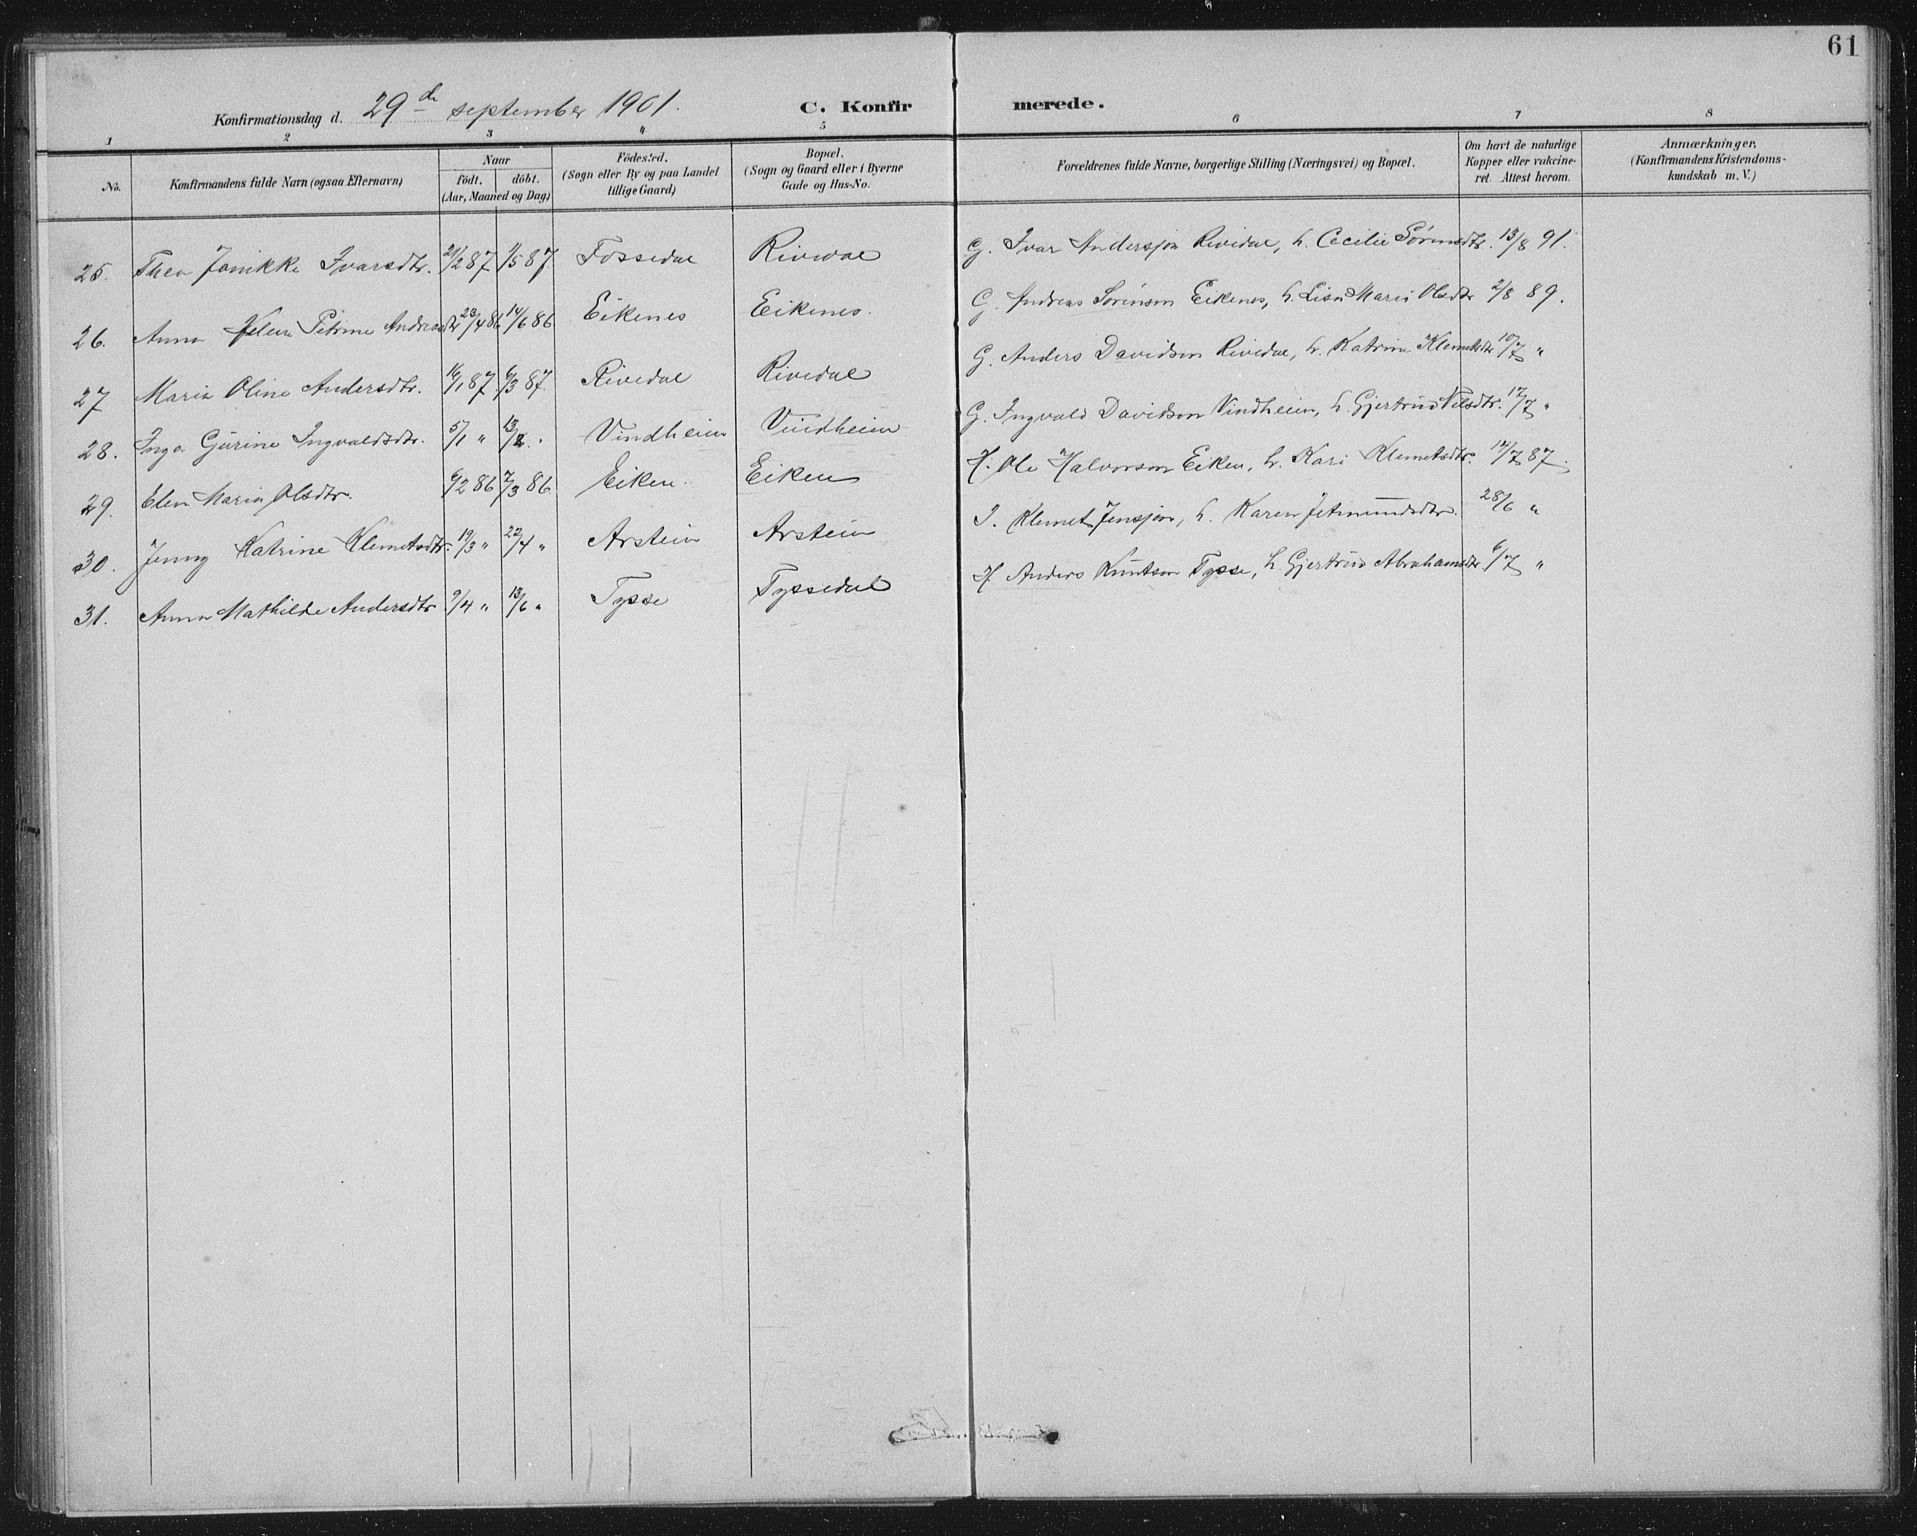 61
Konfirmationsdag d. 29de september 1901. C. Konfirmerede.
1 2 3 4 5 6 7 8
No. Konfirmandens fulde Navn (ogsaa Efternavn) Naar födt. döbt. (Aar, Maaned og Dag) Födested. (Sogn eller By og paa Landet tillige Gaard) Bopæl. (Sogn og Gaard eller i Byerne Gade og Hus-No. Forældrenes fulde Navne, borgerlige Stilling (Næringsvei) og Bopæl. Om havt de naturlige Kopper eller vakcineret. Attest herom. Anmærkninger. (Konfirmandens Kristendomskundskab m. V.)
25. Thea Jonikke Ivarsdtr. 21/2 87 1/5 87. Fossedal Rivedal G. Ivar Andersson Rivedal, h. Cecilie Sørensdtr. 13/8 91.
26. Anna Petrine Andreasdtr 23/4 86 14/6 86 Eikenes Eikenes. G. Andreas Sørenson Eikenes, h. Lisa Marie Olsdtr 2/8 89.
27 Maria Oline Andersdtr. 16/1 87. 6/3 87. Rivedal Rivedal G. Anders Davidson Rivedal, h. Katrine Klemetsdtr 10/7 "
28. Inga Gurine Ingvaldsdtr. 5/1 " 13/2 " Vindheim Vindheim G. Ingvald Davidson Vindheim, h. Gjertrud Nilsdtr. 17/7 "
29. Elen Maria Olsdtr. 6/2 86 7/3 86 Eiken Eiken H. Ole Halvorson Eiken, h. Kari Klemetsdtr. 14/7 87.
30. Jenny Katrine Klemetsdtr. 19/3 " 22/4 " Arstein Arstein I. Klemet Jensson, h. Karen Jetmundsdtr. 28/6 "
31. Anna Mathilde Andersdtr 9/4 " 13/6 " Tysse Tyssedal H Anders Knutson Tysse, h. Gjertrud Abrahamsdtr 6/7 "